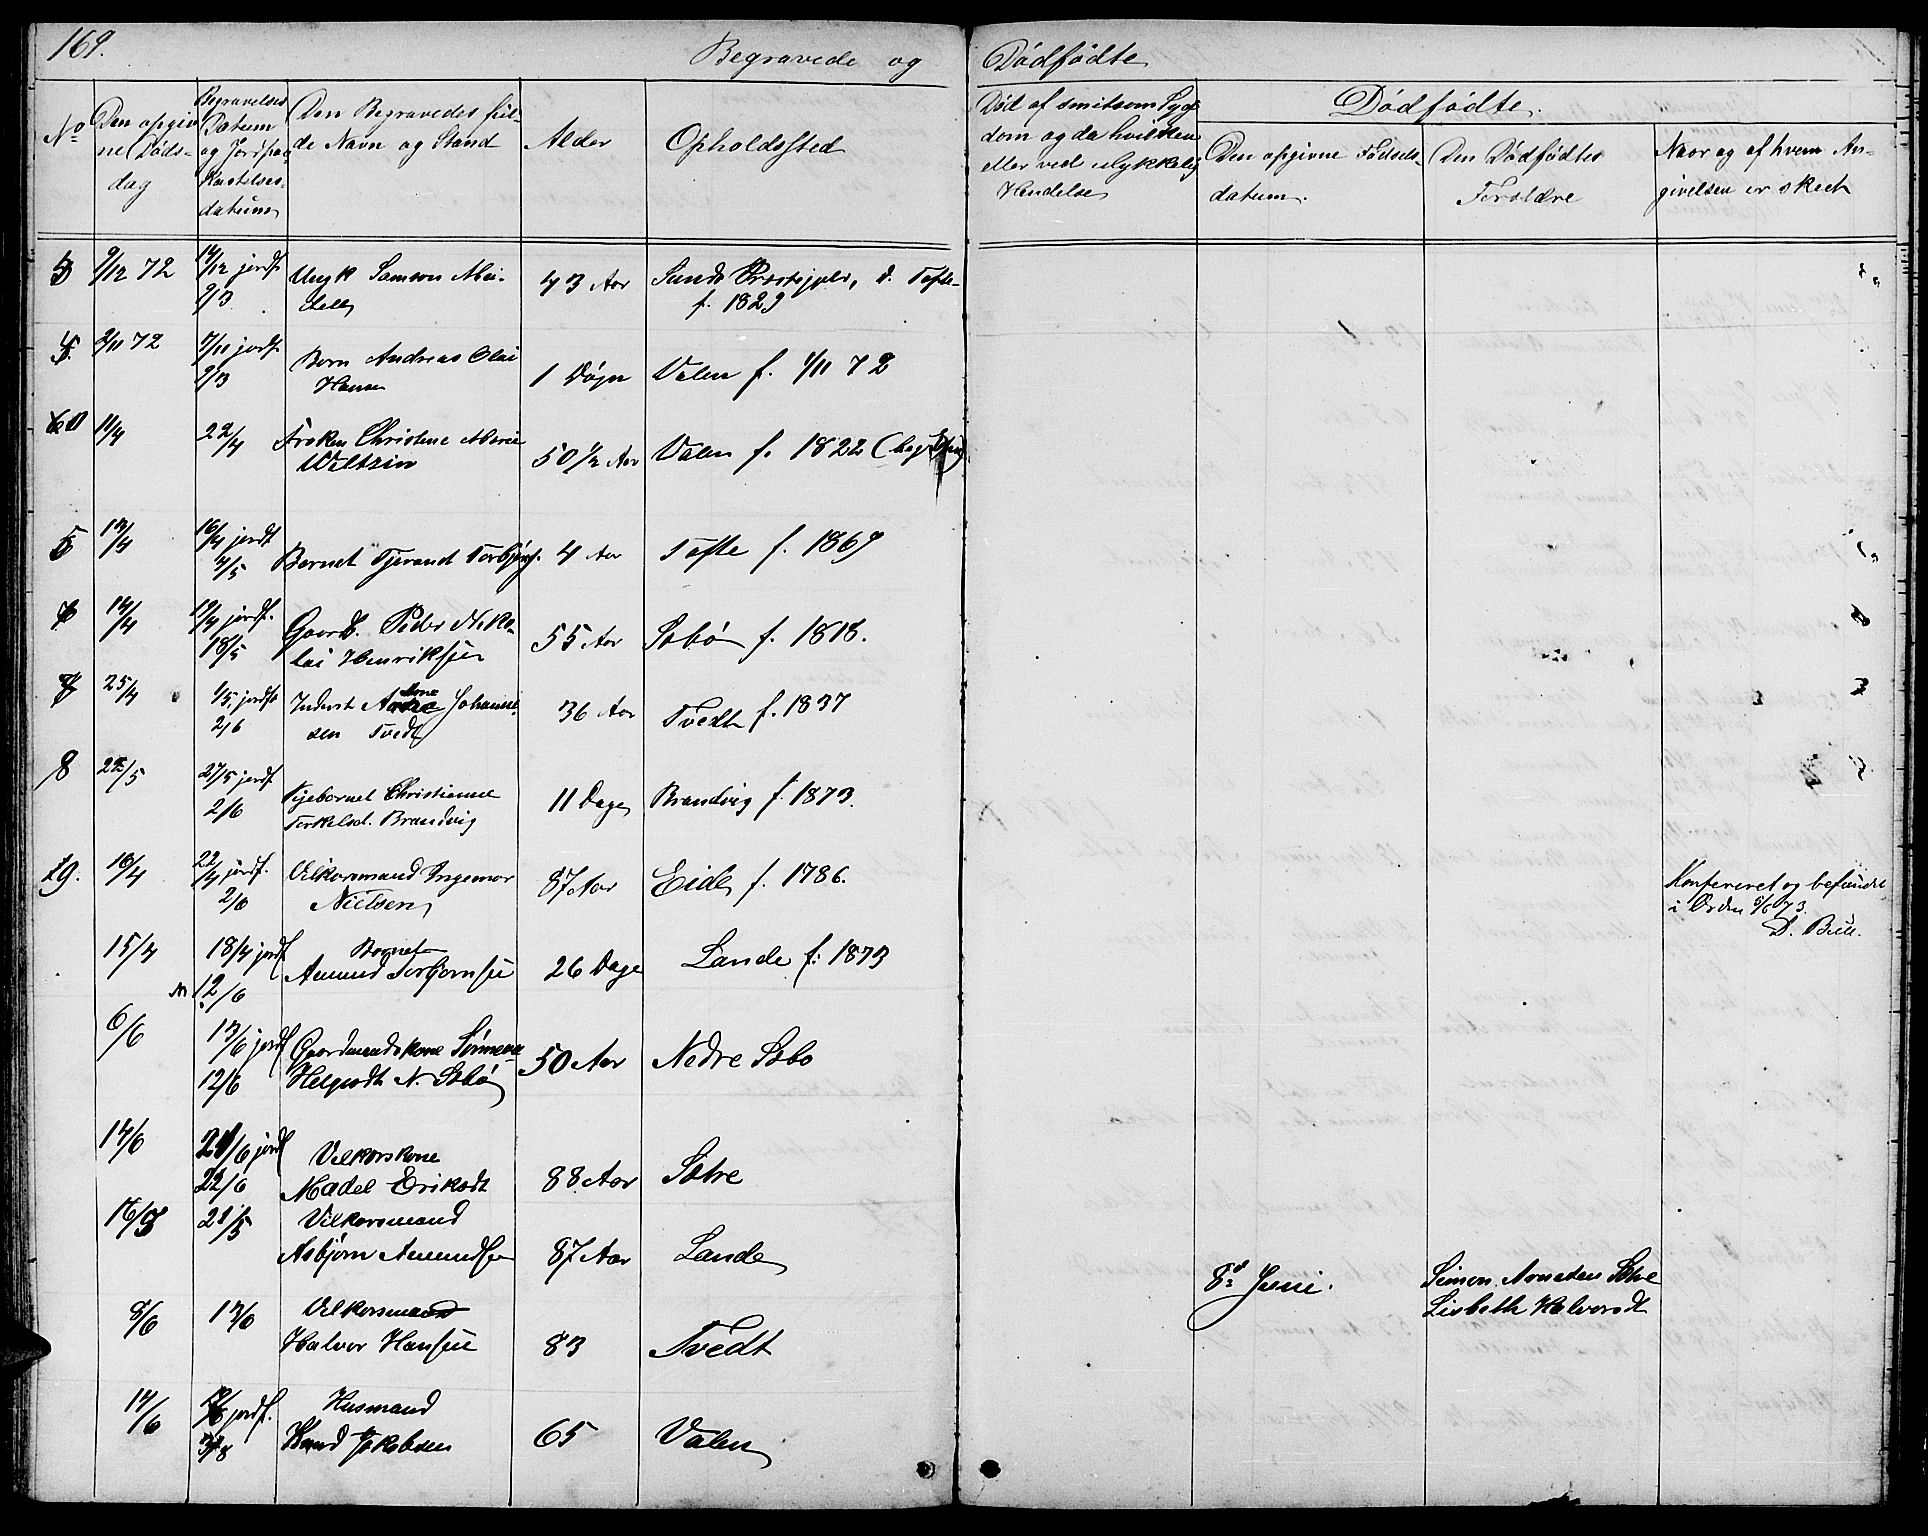 169.
Begravede og Dødfødte
No
Den opgiv
ne Døds-
dag
Begravelses
Datum
og Jordpaa
Kastelses-
datum
Den Begravedes ful-
de Navn og Stand
Alder
Opholdssted
Død af smitsom Syg-
dom og da hvilken
eller ved ulykkelig
Hendelse
Dødfødte.
Den opgivne Fødsels-
datum.
Den Dødfødtes
Forældre
Naar og af hvem An-
givelsen er skeet
9/12 72
14/12 jordf.
2/3
Ungk Samson
43 Aar
Sunds Præstegjeld, d. Tofte
f. 1829
2/11 72
7/11 jordf.
2/3
Barn Andreas Olai
Hansen
1 Døgn
Valen f. 1/11 72
11/4
22/4
Frøken Christine Marie
Weltzin
50 1/2 Aar
Valen f. 1822
5
13/4
16/4 jordf
4/5
Barnet Tjerand Torbjørns.
4 Aar
Tofte f. 1869
14/4
19/4 jordf.
18/5
Gaardb. Peder Niko-
lai Henriksen
55 Aar
Sæbø f. 1818.
25/4
1/5 jordf.
2/6
Inderst Johanne-
sen Tvedt
36 Aar
Tvedt f. 1837
8
22/5
27/5 jordf.
2/6
Pigebarnet Christianne
Torkelsd. Brandvig
11 Dage
Brandvig f. 1873.
9.
16/4
22/4 jordf.
2/6
Vilkorsmand Ingemar
Nielsen
87 Aar
Eide f. 1786.
Konfereret og befundet
i Orden 5/6 73.
D. Bull.
15/4
18/4 jordf
12/6
Barnet
Amund Torbjørnsen
26 Dage
Lande f. 1873
6/6
13/6 jordf
12/6
Gaardmandskone Sønneva
Helgesdt N. Sæbø
50 Aar
Nedre Sæbø
17/6
21/6 jordf
22/6
Vilkorskone
Madel Eriksdt
88 Aar
Sætre
16/5
21/5
Vilkorsmand
Asbjørn Amundsen
87 Aar
Lande
8d Juni.
Simon Arnesen Sætre
Lisbeth Halvorsdt
8/6
13/6
Vilkorsmand
Halvor Hansen
83
Tvedt
14/6
jordf.
Husmand
Knud Jakobsen
65
Valen